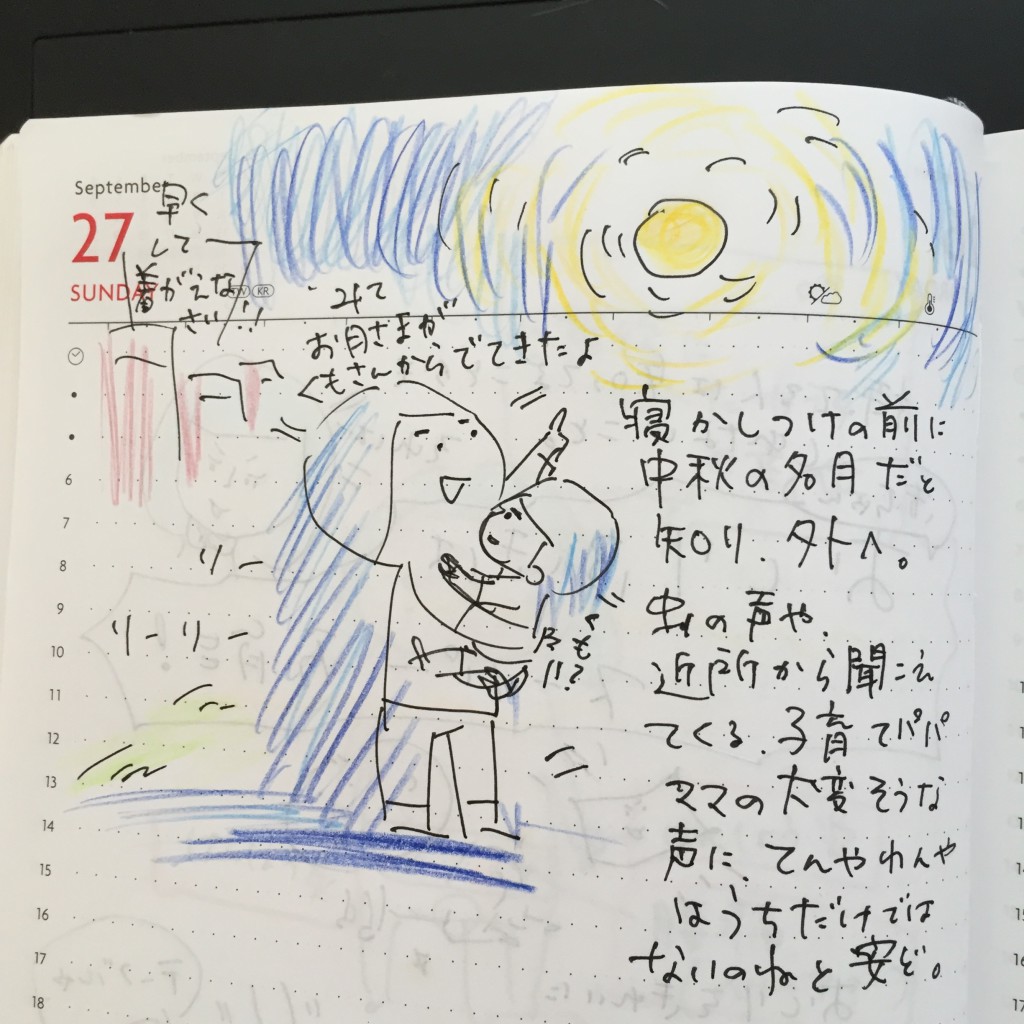 September
27
SUNDAY
KR
早く
して
着がえな
さい!!
みて
お月さまが
くもさんからでてきたよ
リー
リーリー
くも
月!?
寝かしつけの前に
中秋の名月だと
知り、外へ。
虫の声や、
近所から聞こえ
てくる、子育てパパ
ママの大変そうな
声に、てんやわんや
はうちだけでは
ないのねと安ど。
6
7
8
9
10
11
12
13
14
15
16
17
18